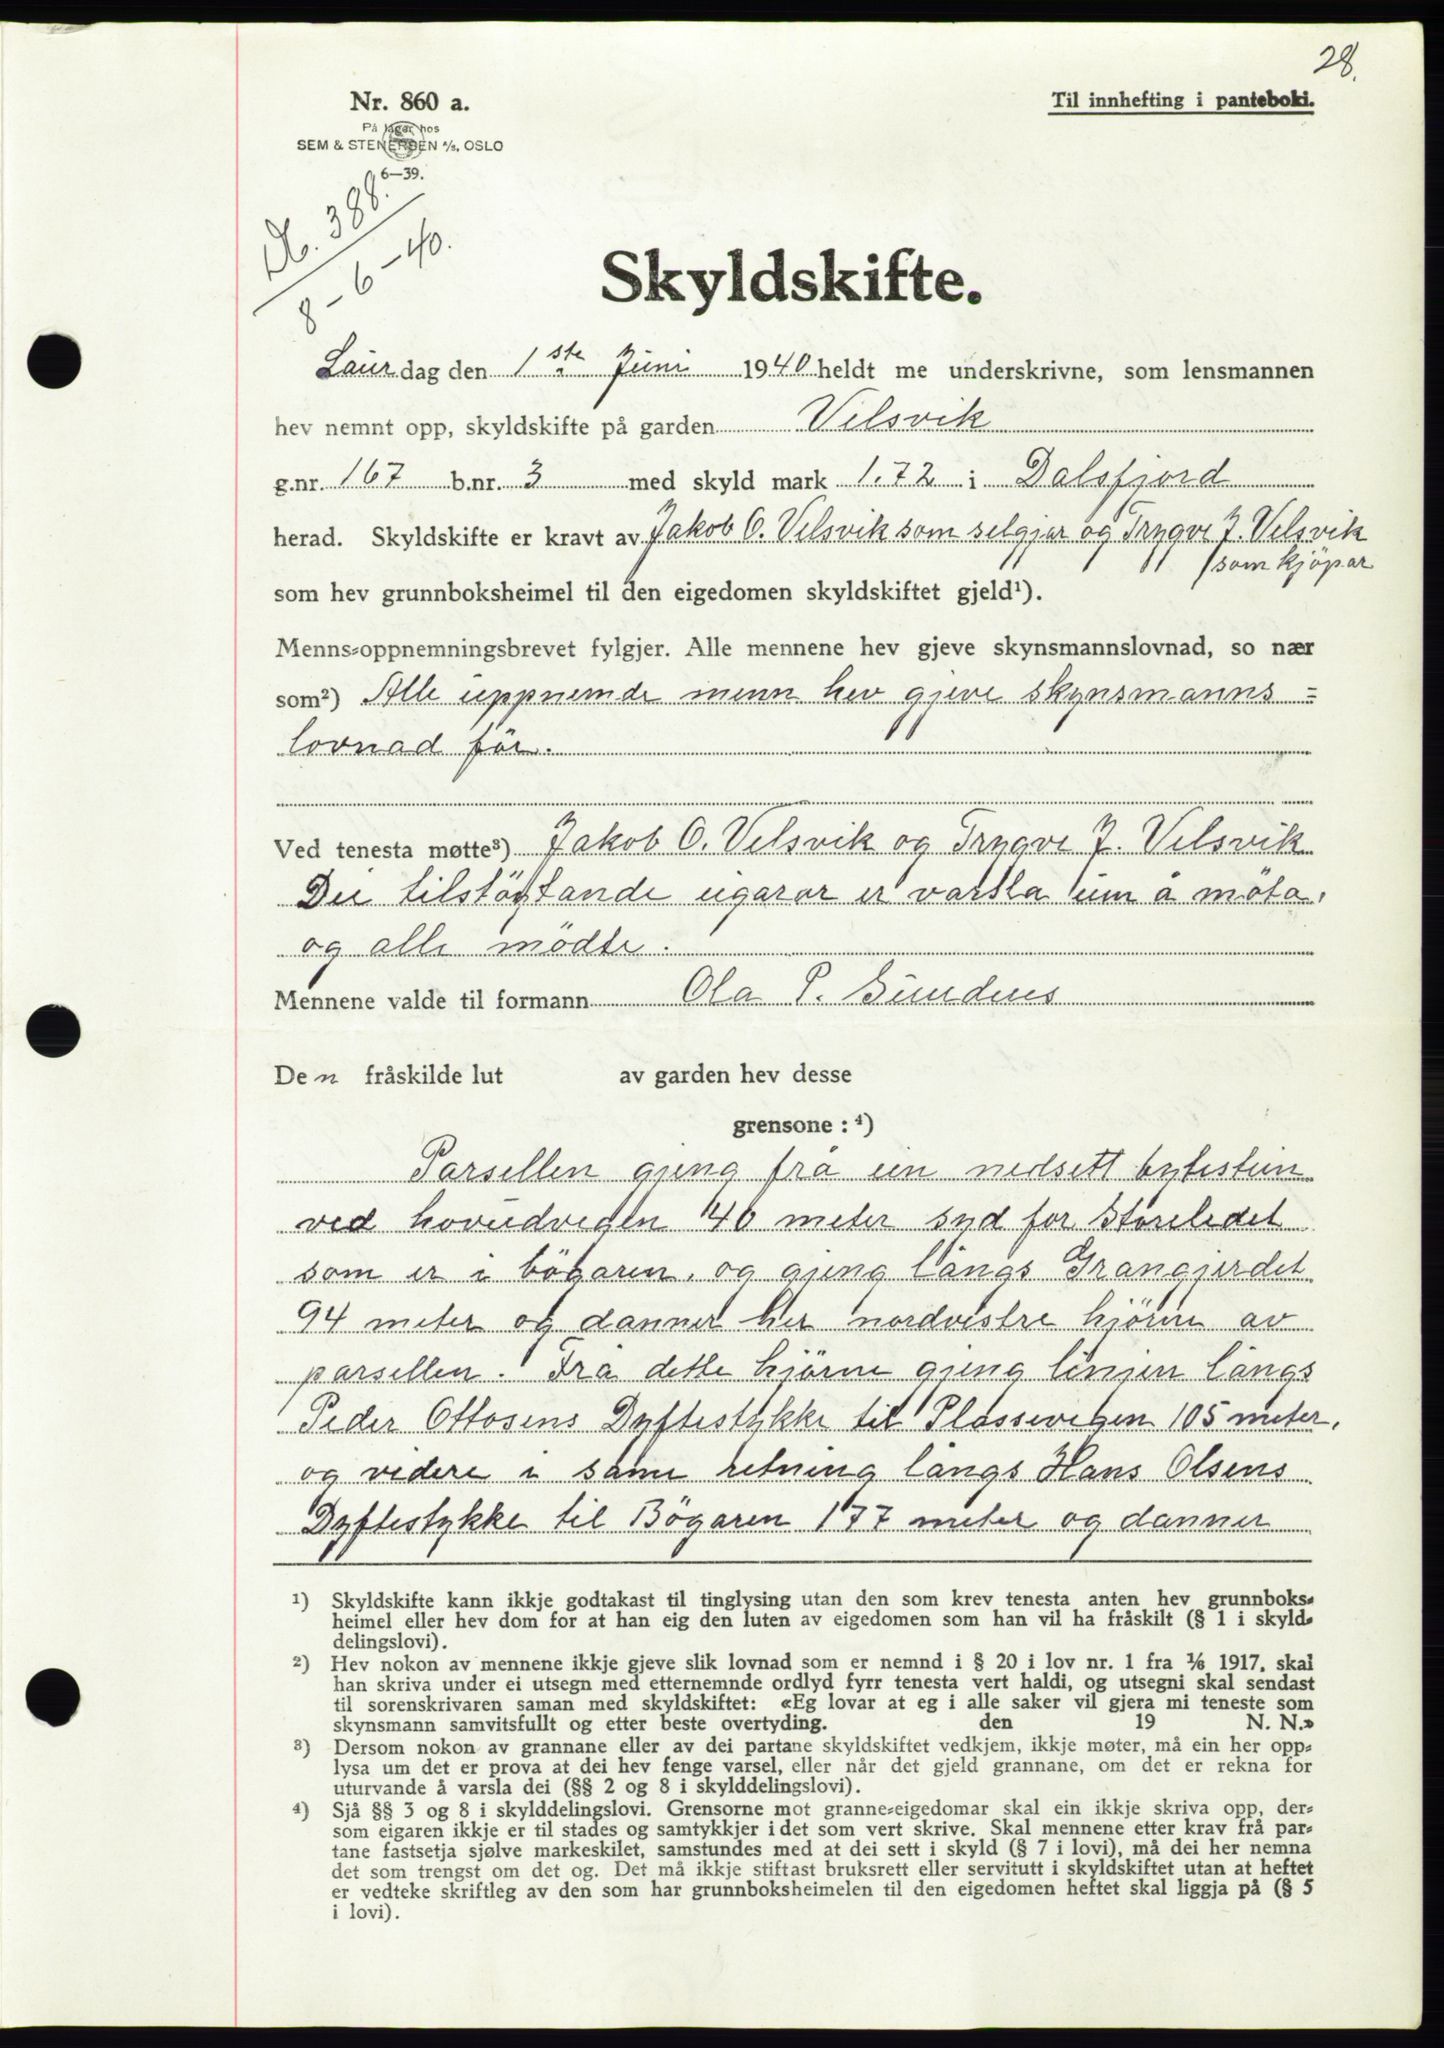 28.
Nr. 860 a.
Til innhefting i panteboki.
På lager hos
SEM & STENERSEN A/S, OSLO
6—39.
Nr. 388.
8-6-40.
Skyldskifte.
Laurdag den 1ste Juni 1940 heldt me underskrivne, som lensmannen
hev nemnt opp, skyldskifte på garden Velsvik
g.nr. 167 b.nr. 3 med skyld mark 1.72 i Dalsfjord
herad. Skyldskifte er kravt av Jakob O. Velsvik som selgjar og Trygve J. Velsvik
som kjöpar
som hev grunnboksheimel til den eigedomen skyldskiftet gjeld¹).
Menns-oppnemningsbrevet fylgjer. Alle mennene hev gjeve skynsmannslovnad, so nær
som²) Alle uppnemde menn hev gjeve skynsmanns=
lovnad för.
Ved tenesta møtte³) Jakob O. Velsvik og Trygve J. Velsvik
Dei tilstøytande eigarar er varsla um å möta,
og alle mödte.
Mennene valde til formann Ola P.
Den fråskilde lut av garden hev desse
grensone : ⁴)
Parsellen gjeng frå ein nedsett bytestein
ved hovudvegen 40 meter syd for Storeledet
som er i bögaren, og gjeng långs Grangjerdet
94 meter og danner her nordvestre hjörne av
parsellen. Frå dette hjörne gjeng linjen långs
Peder Ottosens Dyftestykke til Plassevegen 105 meter,
og videre i same retning långs Hans Olsens
Dyftestykke til Bögaren 177 meter og danner
¹) Skyldskifte kann ikkje godtakast til tinglysing utan den som krev tenesta anten hev grunnboks-
heimel eller hev dom for at han eig den luten av eigedomen som han vil ha fråskilt (§ 1 i skyld-
delingslovi).
²) Hev nokon av mennene ikkje gjeve slik lovnad som er nemnd i § 20 i lov nr. 1 fra 1/6 1917, skal
han skriva under ei utsegn med etternemnde ordlyd fyrr tenesta vert haldi, og utsegni skal sendast
til sorenskrivaren saman med skyldskiftet: «Eg lovar at eg i alle saker vil gjera mi teneste som
skynsmann samvitsfullt og etter beste overtyding. den 19 N. N.»
³) Dersom nokon av grannane eller av dei partane skyldskiftet vedkjem, ikkje møter, må ein her opp-
lysa um det er prova at dei hev fenge varsel, eller når det gjeld grannane, om det er rekna for
uturvande å varsla dei (§§ 2 og 8 i skylddelingslovi).
⁴) Sjå §§ 3 og 8 i skylddelingslovi. Grensorne mot granne-eigedomar skal ein ikkje skriva opp, der-
som eigaren ikkje er til stades og samtykkjer i det som vert skrive. Skal mennene etter krav frå par-
tane fastsetja sjølve markeskilet, samstundes med at dei sett i skyld (§ 7 i lovi), må dei her nemna
det som trengst om det og. Det må ikkje stiftast bruksrett eller servitutt i skyldskiftet utan at heftet
er vedteke skriftleg av den som har grunnboksheimelen til den eigedomen heftet skal liggja på (§ 5
i lovi).